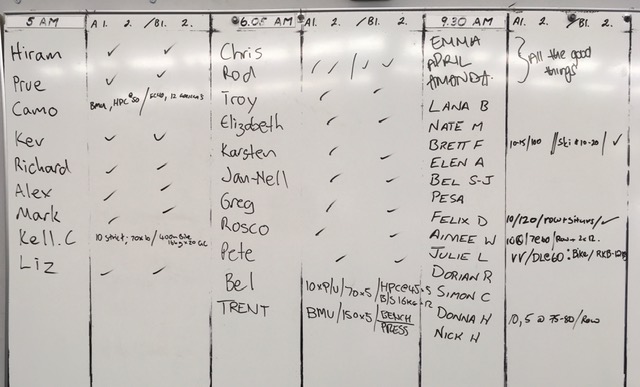 5 AM A1. 2. / B1. 2.
Hiram ✓ ✓
Prue ✓ ✓
Camo BMU, HPC @50 /
Kev ✓ ✓
Richard ✓ ✓
Alex ✓ ✓
Mark ✓ ✓
Kell.C 10 strict, 70x6/400m Bike
16kg x 20 GC
Liz ✓ ✓
6.05 AM A1. 2. / B1. 2.
Chris
Rod / / / / ✓
Troy
Elizabeth
Karsten
Jan-Nell
Greg
Rosco
Pete
Bel 10xP/U/70x5/HPC@45x5
B/S 16kg x 12
TRENT BMU/150x5/BENCH
PRESS
9.30 AM A1. 2. B1. 2.
EMMA
APRIL } All the good
AMANDA. things
LANA B
NATE M
BRETT F 10-15/100 // Ski # 10-20 / ✓
ELEN A
BEL S-J
PESA
FELIX D 10/120/row+situps/✓
AIMEE W /7@60/Row+2x12.
JULIE L VV/DL@60: Bike/
DORIAN R
SIMON C
DONNA H 10,5 @ 75-80/Row
NICK H